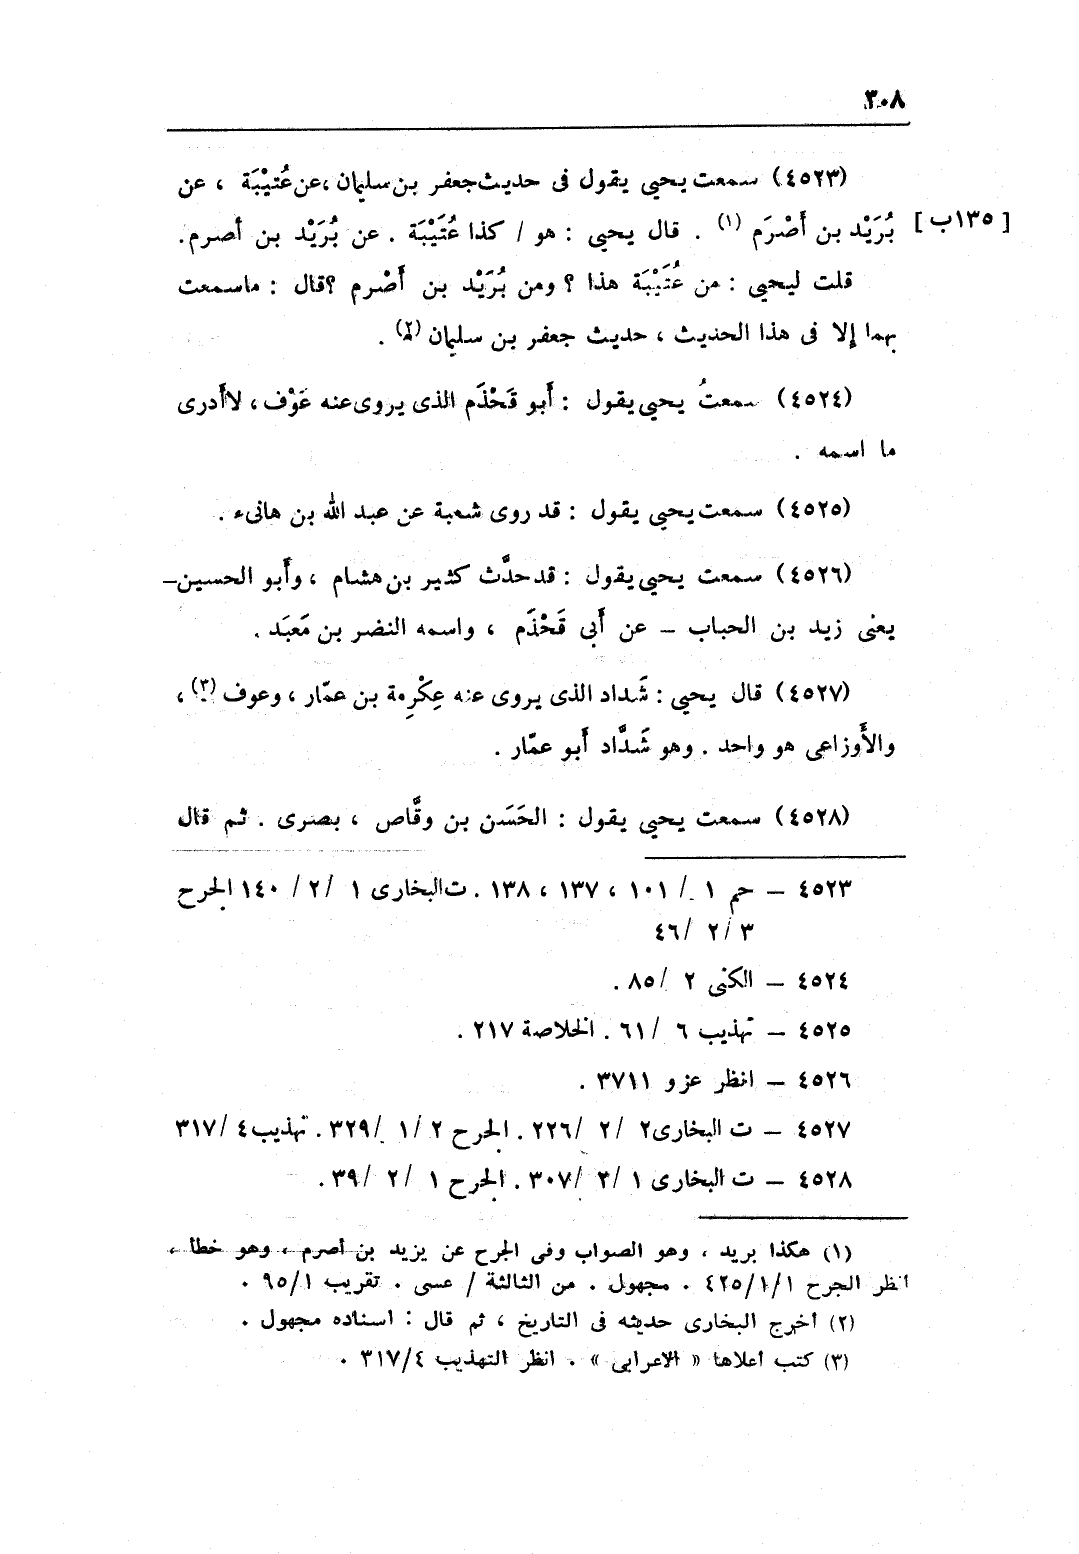 ٣٠٨
(٤٥٢٣) سمعت يحيى يقول فى حديث جعفر بن سليمان ، عن عُتَيْبَة ، عن
[ ١٣٥ب ] بُرَيْد بن أَصْرَم (١) . قال يحيى : هو / كذا عُتَيْبَة . عن بُرَيْد بن أصرم.
قلت ليحيى : من عُتَيْبَة هذا ؟ ومن بُرَيْد بن أَصْرم ؟ قال : ماسمعت
بهما إلا فى هذا الحديث ، حديث جعفر بن سليمان (٢) .
(٤٥٢٤) سمعتُ يحيى يقول : أَبو قَحْذَم الذى يروى عنه عَوْف ، لا أَدرى
ما اسمه .
(٤٥٢٥) سمعت يحيى يقول : قد روى شعبة عن عبد الله بن هانىء .
(٤٥٢٦) سمعت يحيى يقول : قد حدَّث كثير بن هشام ، وأَبو الحسين –
يعنى زيد بن الحباب – عن أَبى قَحْذَم ، واسمه النضر بن مَعبَد .
(٤٥٢٧) قال يحيى : شَداد الذى يروى عنه عِكْرِمة بن عمّار ، وعوف (٣) ،
والأَوزاعى هو واحد . وهو شَدَّاد أَبو عمّار .
(٤٥٢٨) سمعت يحيى يقول : الحَسَن بن وقَّاص ، بصرى . ثم قال
٤٥٢٣ – حم ١ / ١٠١ ، ١٣٧ ، ١٣٨ . ت البخارى ١ / ٢ / ١٤٠ الجرح
٣ / ٢ / ٤٦
٤٥٢٤ – الكنى ٢ / ٨٥ .
٤٥٢٥ – تهذيب ٦ / ٦١ . الخلاصة ٢١٧ .
٤٥٢٦ – انظر عزو ٣٧١١ .
٤٥٢٧ – ت البخارى ٢ / ٢ / ٢٢٦ . الجرح ٢ / ١ / ٣٢٩ . تهذيب ٤ / ٣١٧
٤٥٢٨ – ت البخارى ١ / ٢ / ٣٠٧ . الجرح ١ / ٢ / ٣٩ .
(١) هكذا بريد ، وهو الصواب وفى الجرح عن يزيد بن أصرم ، وهو خطأ ،
انظر الجرح ٤٢٥/١/١ . مجهول . من الثالثة / عسى . تقريب ٩٥/١ .
(٢) أخرج البخارى حديثه فى التاريخ ، ثم قال : اسناده مجهول .
(٣) كتب أعلاها « الاعرابى » . انظر التهذيب ٣١٧/٤ .